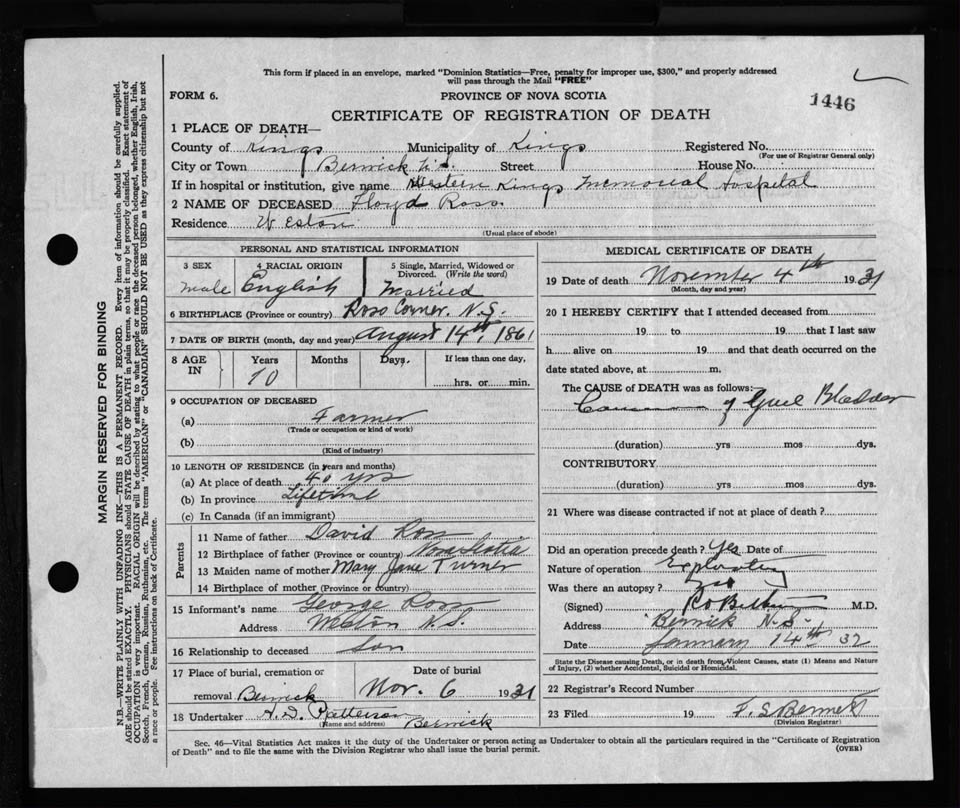 This form if placed in an envelope, marked "Dominion Statistics—Free, penalty for improper use, $300," and properly addressed
will pass through the Mail "FREE"
FORM 6.
PROVINCE OF NOVA SCOTIA
1446
CERTIFICATE OF REGISTRATION OF DEATH
1 PLACE OF DEATH—
County of Kings Municipality of Kings Registered No.
(For use of Registrar General only)
City or Town Berwick N.S. Street House No.
If in hospital or institution, give name Western Kings Memorial Hospital
2 NAME OF DECEASED Floyd Ross.
Residence Weston
(Usual place of abode)
PERSONAL AND STATISTICAL INFORMATION
3 SEX 4 RACIAL ORIGIN 5 Single, Married, Widowed or Divorced. (Write the word)
male English Married
6 BIRTHPLACE (Province or country) Ross Corner. N.S.
7 DATE OF BIRTH (month, day and year) August 14th, 1861
8 AGE IN Years Months Days. If less than one day,
70 hrs. or min.
9 OCCUPATION OF DECEASED
(a) Farmer
(Trade or occupation or kind of work)
(b)
(Kind of industry)
10 LENGTH OF RESIDENCE (in years and months)
(a) At place of death 40 yrs
(b) In province Lifetime
(c) In Canada (if an immigrant)
Parents
11 Name of father David Ross
12 Birthplace of father (Province or country) Nova Scotia
13 Maiden name of mother Mary Jane Turner
14 Birthplace of mother (Province or country)
15 Informant's name George Ross
Address Weston N.S.
16 Relationship to deceased Son
17 Place of burial, cremation or Date of burial
removal Berwick Nov. 6 1931
18 Undertaker Patterson Berwick
(Name and address)
MEDICAL CERTIFICATE OF DEATH
19 Date of death November 4th 1931
(Month, day and year)
20 I HEREBY CERTIFY that I attended deceased from
19 to 19 that I last saw
h alive on 19 and that death occurred on the
date stated above, at m.
The CAUSE OF DEATH was as follows:
of Gall Bladder
(duration) yrs mos dys.
CONTRIBUTORY
(duration) yrs mos dys.
21 Where was disease contracted if not at place of death?
Did an operation precede death? Yes Date of
Nature of operation Exploratory
Was there an autopsy? no
(Signed) M.D.
Address Berwick N.S.
Date January 14th 32
State the Disease causing Death, or in death from Violent Causes, state (1) Means and Nature
of Injury, (2) whether Accidental, Suicidal or Homicidal.
22 Registrar's Record Number
23 Filed 19 F. S. Bennett
(Division Registrar)
Sec. 46—Vital Statistics Act makes it the duty of the Undertaker or person acting as Undertaker to obtain all the particulars required in the "Certificate of Registration
of Death" and to file the same with the Division Registrar who shall issue the burial permit.
(OVER)
MARGIN RESERVED FOR BINDING
N.B.—WRITE PLAINLY WITH UNFADING INK—THIS IS A PERMANENT RECORD. Every item of information should be carefully supplied.
AGE should be stated EXACTLY. PHYSICIANS should STATE CAUSE OF DEATH in plain terms, so that it may be properly classified. Exact statement of
OCCUPATION is very important. RACIAL ORIGIN will be described by stating to what people or race the deceased person belonged, whether English, Irish,
Scotch, French, German, Russian, Ruthenian, etc. The terms "AMERICAN" or "CANADIAN" SHOULD NOT BE USED as they express citizenship but not
a race or people. See instructions on back of Certificate.